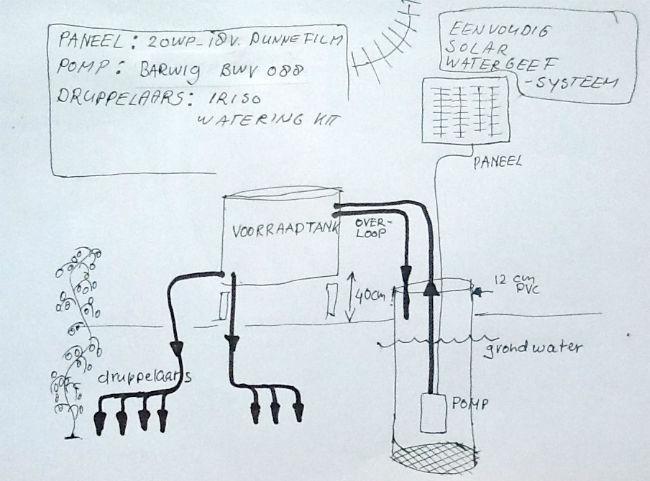 PANEEL: 20WP-18V. DUNNEFILM
POMP: BARWIG BWV 088
DRUPPELAARS: IRISO
WATERING KIT
EENVOUDIG
SOLAR
WATERGEEF
-SYSTEEM
PANEEL
VOORRAADTANK
OVER-
LOOP
40cm
12 cm
PVC
grondwater
druppelaars
POMP